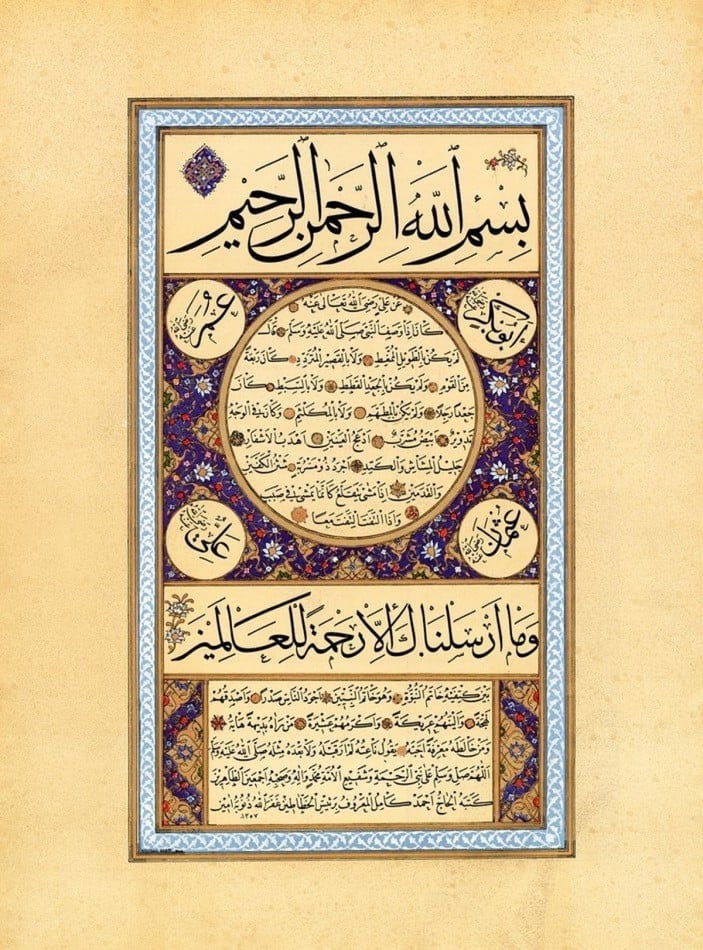 بِسْمِ اللَّهِ الرَّحْمَنِ الرَّحِيمِ
أبو بكر رضي الله عنه
عمر رضي الله عنه
عَنْ عَلِيٍّ رَضِيَ اللهُ تَعَالَى عَنْهُ
كَانَ إِذَا وَصَفَ النَّبِيَّ صَلَّى اللهُ عَلَيْهِ وَسَلَّمَ قَالَ
لَمْ يَكُنْ بِالطَّوِيلِ الْمُمَّغِطِ وَلَا بِالْقَصِيرِ الْمُتَرَدِّدِ كَانَ رَبْعَةً
مِنَ الْقَوْمِ وَلَمْ يَكُنْ بِالْجَعْدِ الْقَطَطِ وَلَا بِالسَّبِطِ كَانَ
جَعْدًا رَجِلًا وَلَمْ يَكُنْ بِالْمُطَهَّمِ وَلَا بِالْمُكَلْثَمِ وَكَانَ فِي الْوَجْهِ
تَدْوِيرٌ أَبْيَضُ مُشْرَبٌ أَدْعَجُ الْعَيْنَيْنِ أَهْدَبُ الْأَشْفَارِ
جَلِيلُ الْمُشَاشِ وَالْكَتَدِ أَجْرَدُ ذُو مَسْرُبَةٍ شَثْنُ الْكَفَّيْنِ
وَالْقَدَمَيْنِ إِذَا مَشَى تَقَلَّعَ كَأَنَّمَا يَمْشِي فِي صَبَبٍ
وَإِذَا الْتَفَتَ الْتَفَتَ مَعًا
عثمان رضي الله عنه
علي رضي الله عنه
وَمَا أَرْسَلْنَاكَ إِلَّا رَحْمَةً لِلْعَالَمِينَ
بَيْنَ كَتِفَيْهِ خَاتَمُ النُّبُوَّةِ وَهُوَ خَاتَمُ النَّبِيِّينَ أَجْوَدُ النَّاسِ صَدْرًا وَأَصْدَقُهُمْ
لَهْجَةً وَأَلْيَنُهُمْ عَرِيكَةً وَأَكْرَمُهُمْ عِشْرَةً مَنْ رَآهُ بَدِيهَةً هَابَهُ
وَمَنْ خَالَطَهُ مَعْرِفَةً أَحَبَّهُ يَقُولُ نَاعِتُهُ لَمْ أَرَ قَبْلَهُ وَلَا بَعْدَهُ مِثْلَهُ صَلَّى اللهُ عَلَيْهِ وَسَلَّمَ
اللَّهُمَّ صَلِّ وَسَلِّمْ عَلَى نَبِيِّ الرَّحْمَةِ وَشَفِيعِ الْأُمَّةِ مُحَمَّدٍ وَآلِهِ وَصَحْبِهِ أَجْمَعِينَ الطَّاهِرِينَ
كَتَبَهُ الْحَاجُّ أَحْمَدُ كَامِلُ الْمَعْرُوفُ بِرَئِيسِ الْخَطَّاطِينَ غَفَرَ اللهُ ذُنُوبَهُ آمِينَ
١٣٥٧